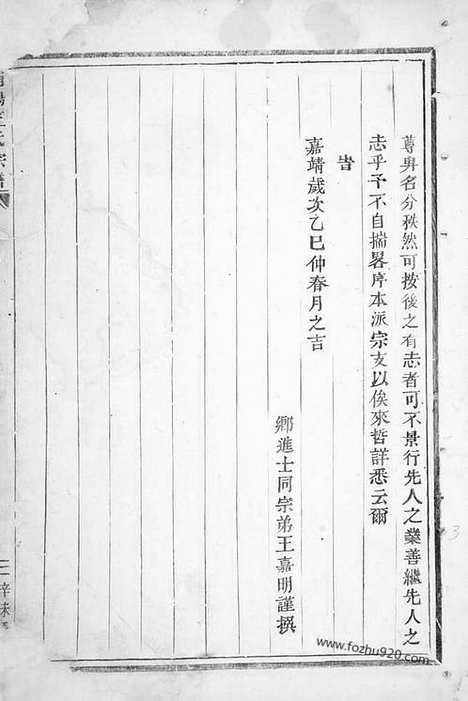 尊卑名分秩然可按後之有志者可不景行先人之業善繼先人之
志乎予不自揣畧序本派宗支以俟來哲詳悉云爾
旹
嘉靖歲次乙巳仲春月之吉
鄉進士同宗弟王嘉明謹撰
宗譜
www.fozhu920.com